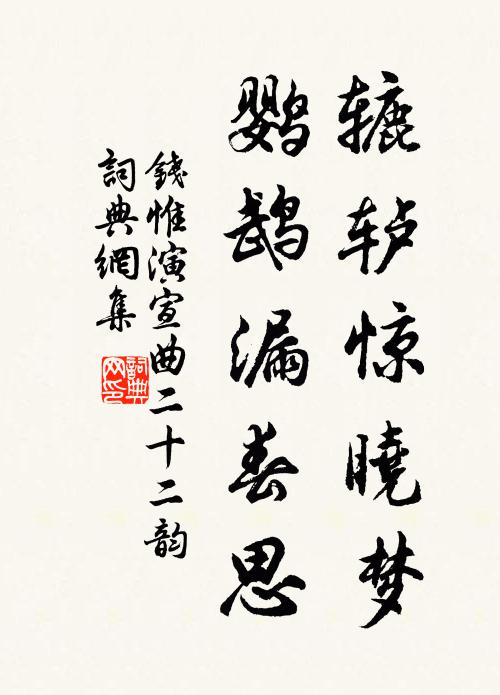 辘轳惊曉梦
鹦鹉漏春思
錢惟演宣曲二十二韵
詞典網集
詞典网印